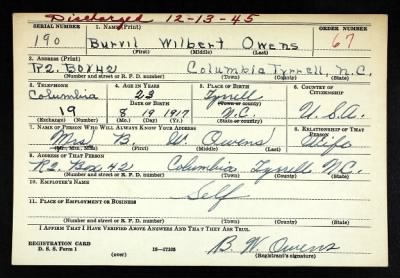 Discharged 12-13-45
SERIAL NUMBER 1. NAME (Print) ORDER NUMBER
190 Burvil Wilbert Owens 67
(First) (Middle) (Last)
2. ADDRESS (Print)
R2. Box 42 Columbia Tyrrell, N.C.
(Number and street or R. F. D. number) (Town) (County) (State)
3. TELEPHONE 4. AGE IN YEARS 5. PLACE OF BIRTH 6. COUNTRY OF CITIZENSHIP
Columbia 23 Tyrrell
DATE OF BIRTH (Town or county)
19 8 19 1917 N.C. U.S.A.
(Exchange) (Number) (Mo.) (Day) (Yr.) (State or country)
7. NAME OF PERSON WHO WILL ALWAYS KNOW YOUR ADDRESS 8. RELATIONSHIP OF THAT PERSON
Mrs B. W. Owens Wife
(Mr., Mrs., Miss) (First) (Middle) (Last)
9. ADDRESS OF THAT PERSON
R2. Box 42 Columbia Tyrrell N.C.
(Number and street or R. F. D. number) (Town) (County) (State)
10. EMPLOYER'S NAME
Self
11. PLACE OF EMPLOYMENT OR BUSINESS
(Number and street or R. F. D. number) (Town) (County) (State)
I AFFIRM THAT I HAVE VERIFIED ABOVE ANSWERS AND THAT THEY ARE TRUE.
REGISTRATION CARD B. W. Owens
D. S. S. Form 1 16-17105 (Registrant's signature)
(over)